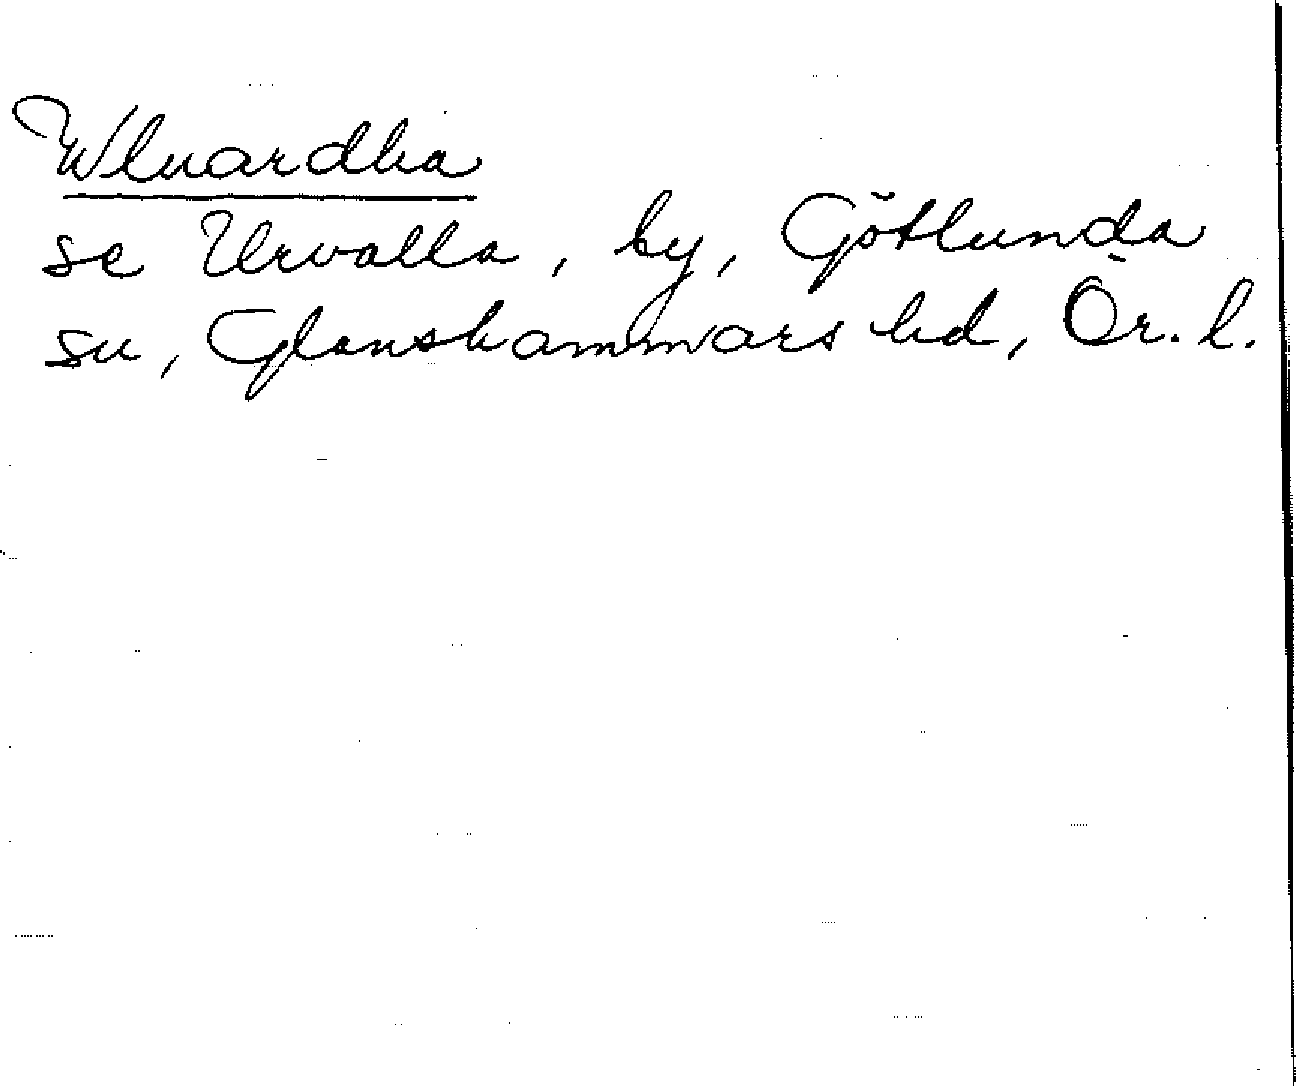 Wluardha
se Urvalla, by, Götlunda
sn, Glanshammars hd, Ör. l.